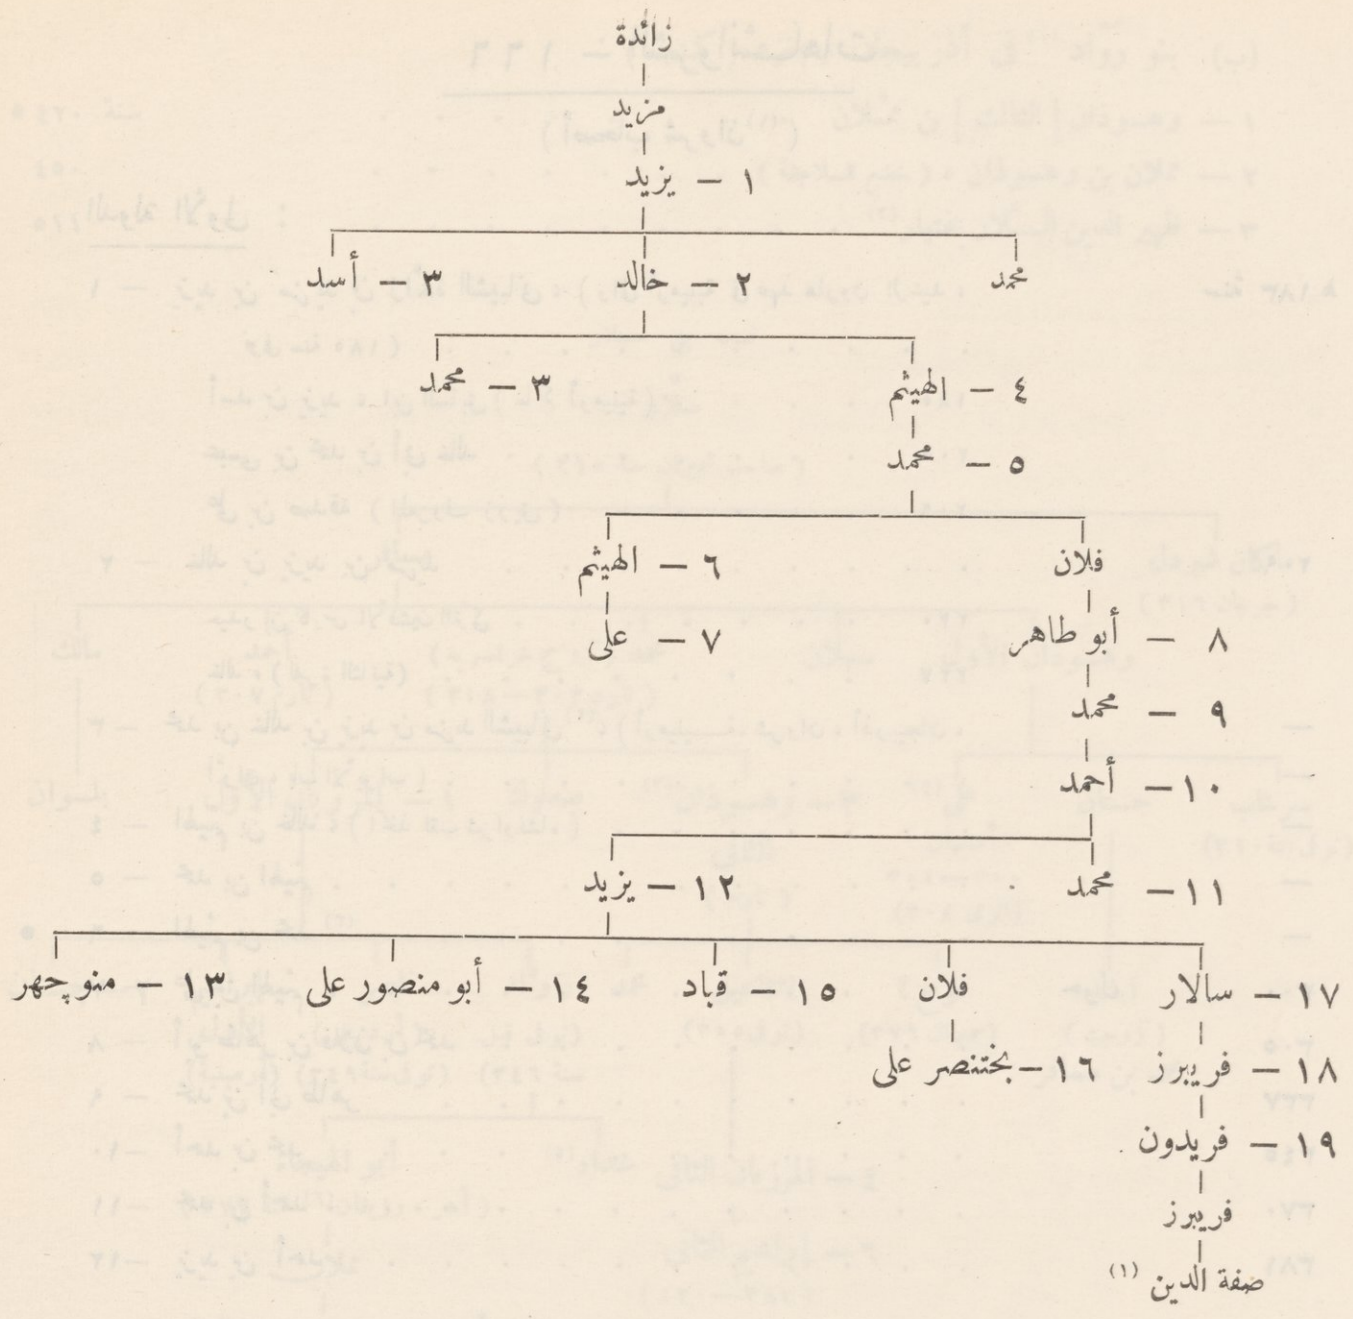 زائدة
مزيد
١ – يزيد
محمد ٢ – خالد ٣ – أسد
٤ – الهيثم ٣ – محمد
٥ – محمد
فلان ٦ – الهيثم
٨ – أبو طاهر ٧ – على
٩ – محمد
١٠ – أحمد
١١ – محمد ١٢ – يزيد
١٧ – سالار فلان ١٥ – قباد ١٤ – أبو منصور على ١٣ – منوچهر
١٨ – فريبرز ١٦ – بختنصر على
١٩ – فريدون
فريبرز
صفة الدين (١)